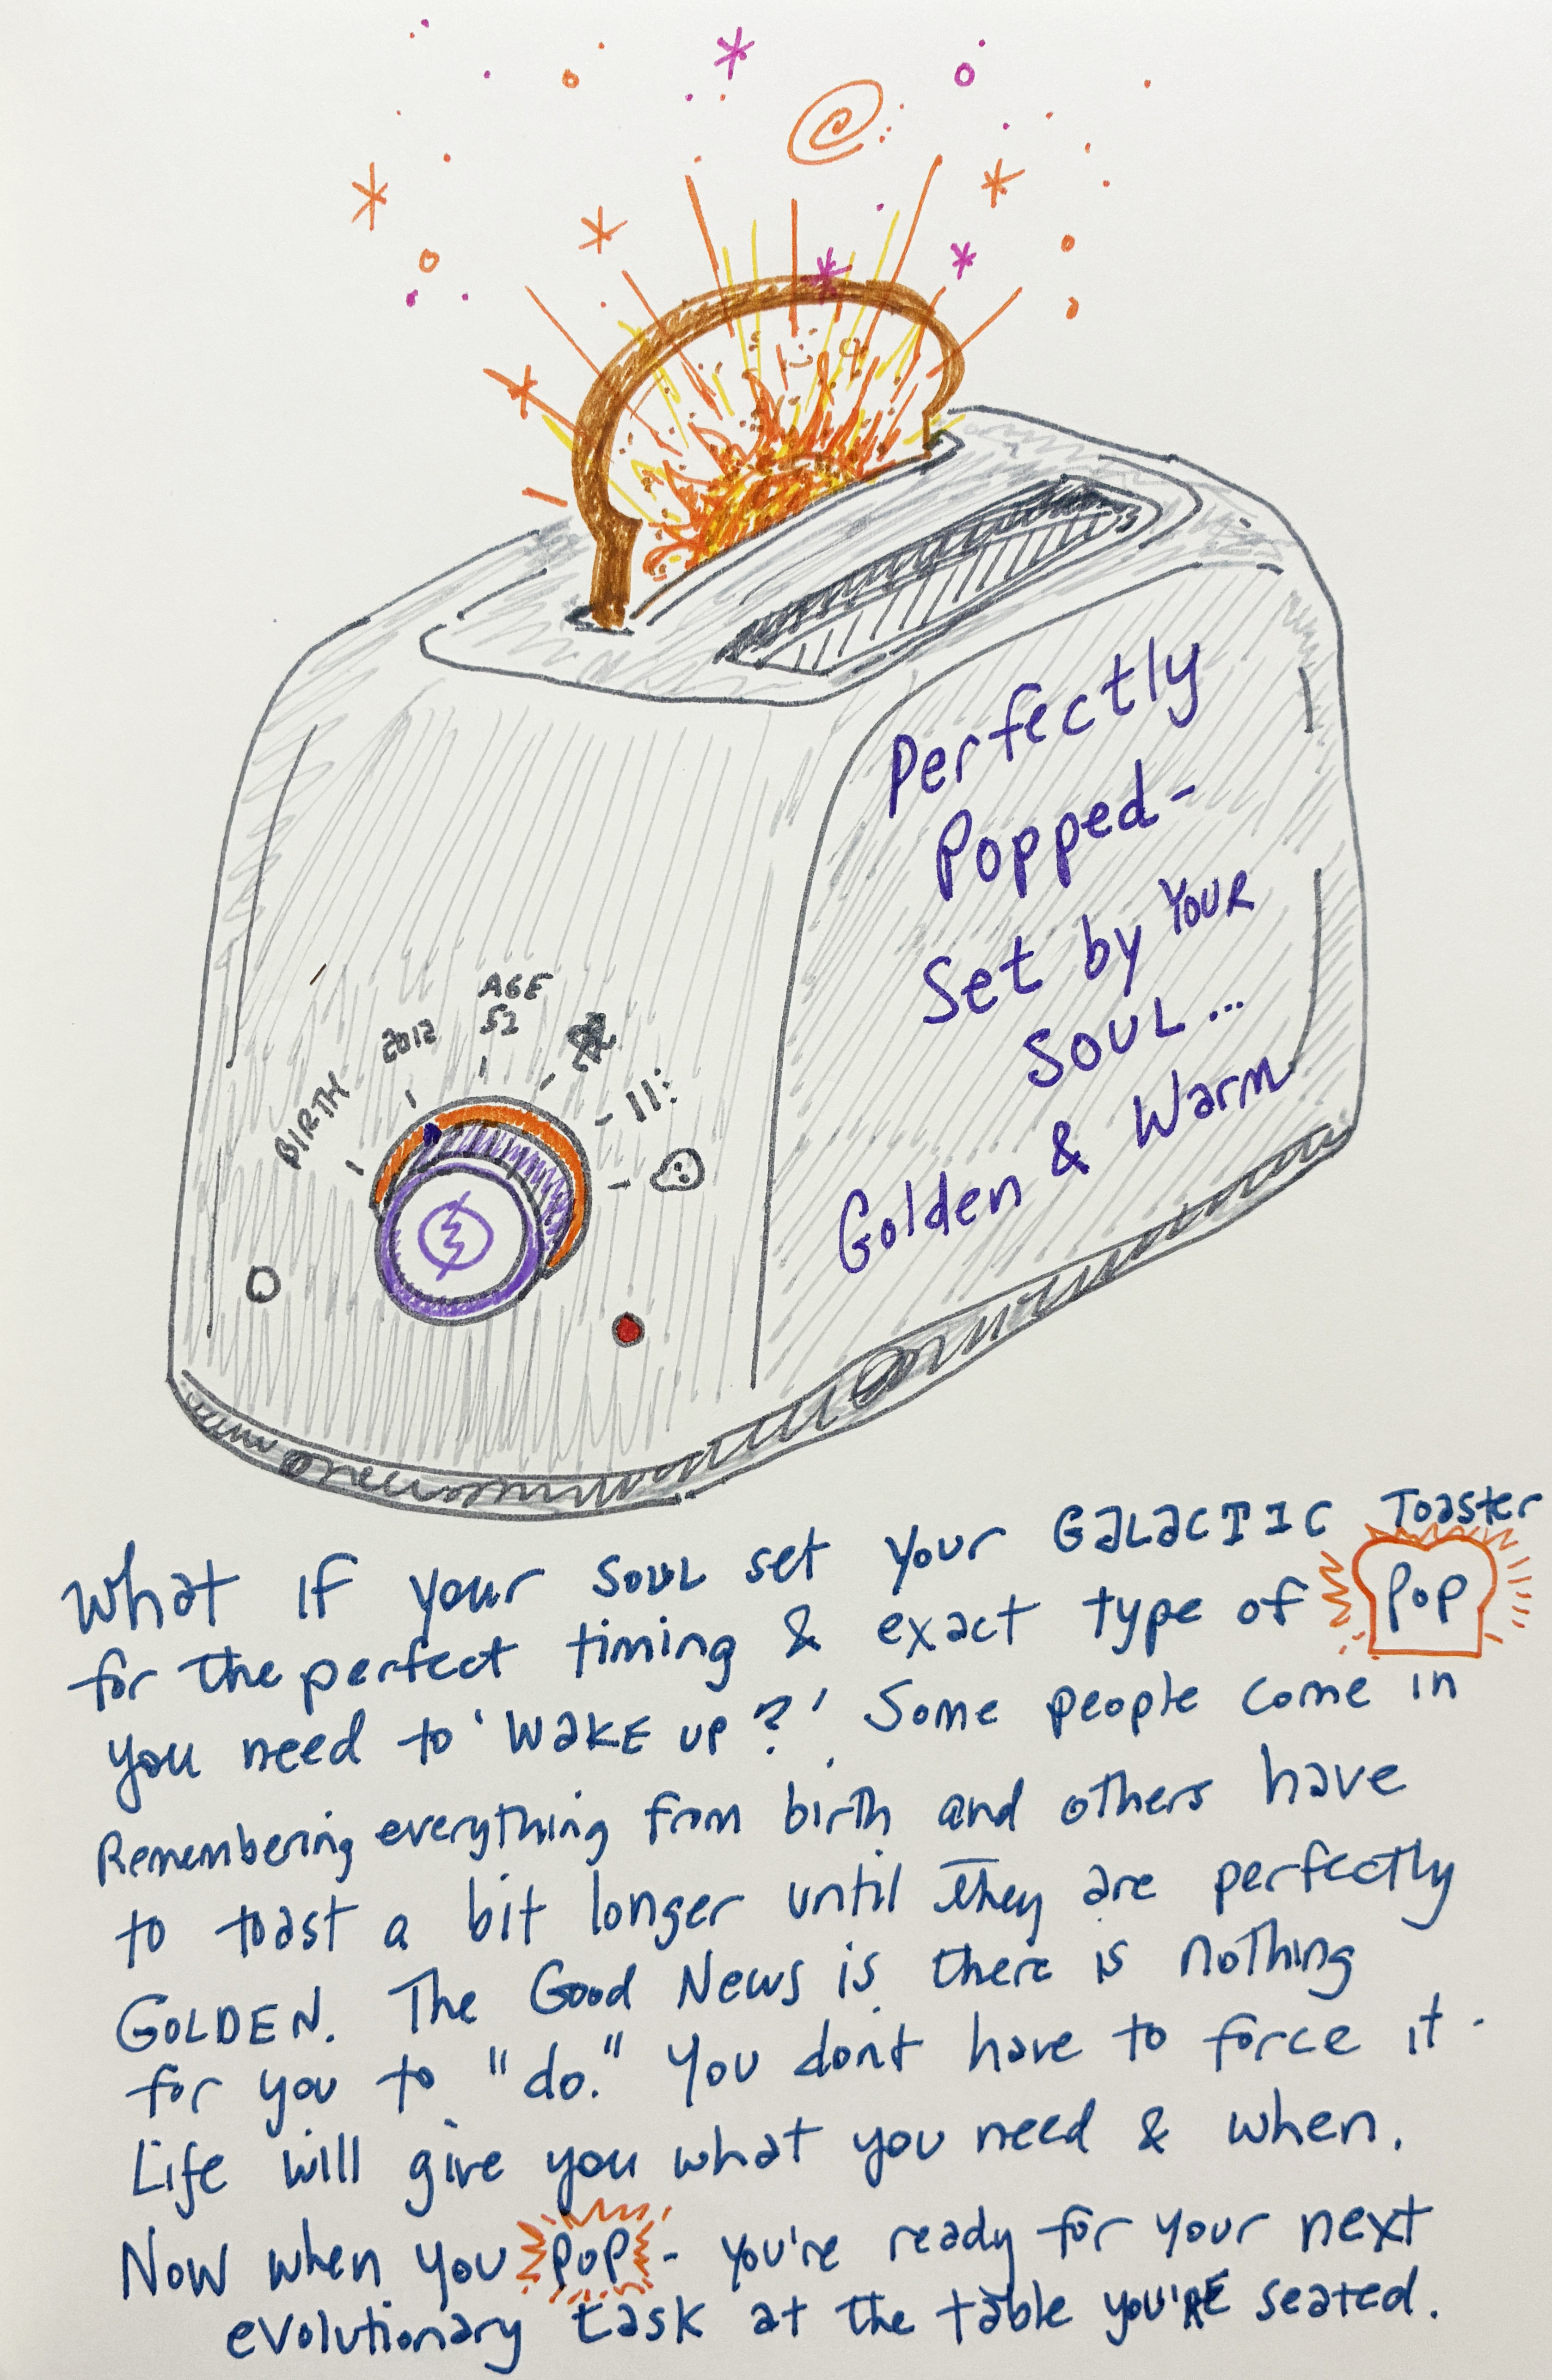 BIRTH
2012
AGE
52
11:
Perfectly
Popped-
Set by YOUR
SOUL...
Golden & Warm
What if your SOUL set your GALACTIC Toaster
for the perfect timing & exact type of POP
you need to 'WAKE UP?' Some people come in
Remembering everything from birth and others have
to toast a bit longer until they are perfectly
GOLDEN. The Good News is there is nothing
for you to "do." You dont have to force it.
Life will give you what you need & when.
Now when you POP - you're ready for your next
evolutionary task at the table you'RE seated.